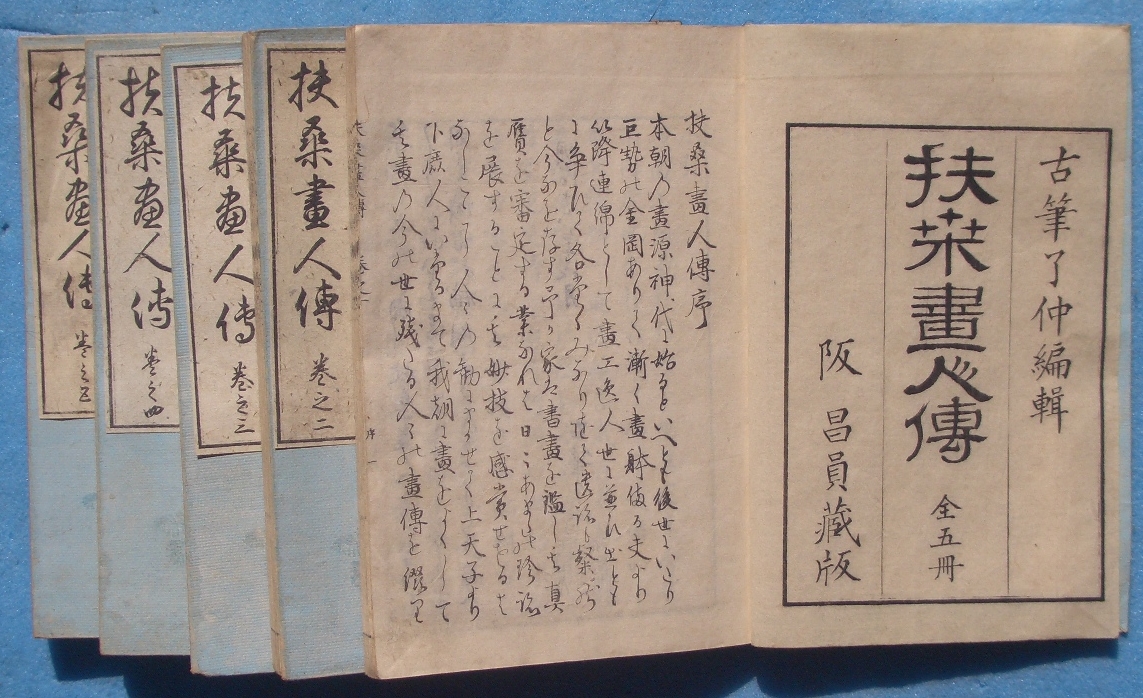 古筆了仲編輯
扶桒畫人傳 全五冊
阪 昌員藏版
扶桑畫人傳序
本朝の畫源神代に始るといへとも後世にいたり
巨勢の金岡ありて漸く畫躰備る夫より
以降連綿として畫工逸人世に並ひ出とも
に争ひて各
と存す予か家は書畫を鑑し其真
贋を審定する業なれは日々あまたの珍跡
を展することに其妙技を感賞せさるは
なし人々の勧にまかせて上天子より
下庶人にいたるまて我朝に畫をよくして
其畫の今の世に残れる人々の畫傳を
序 一
扶桑畫人傳 巻之二
扶桑畫人傳 巻之三
扶桑畫人傳 巻之四
扶桑畫人傳 巻之五